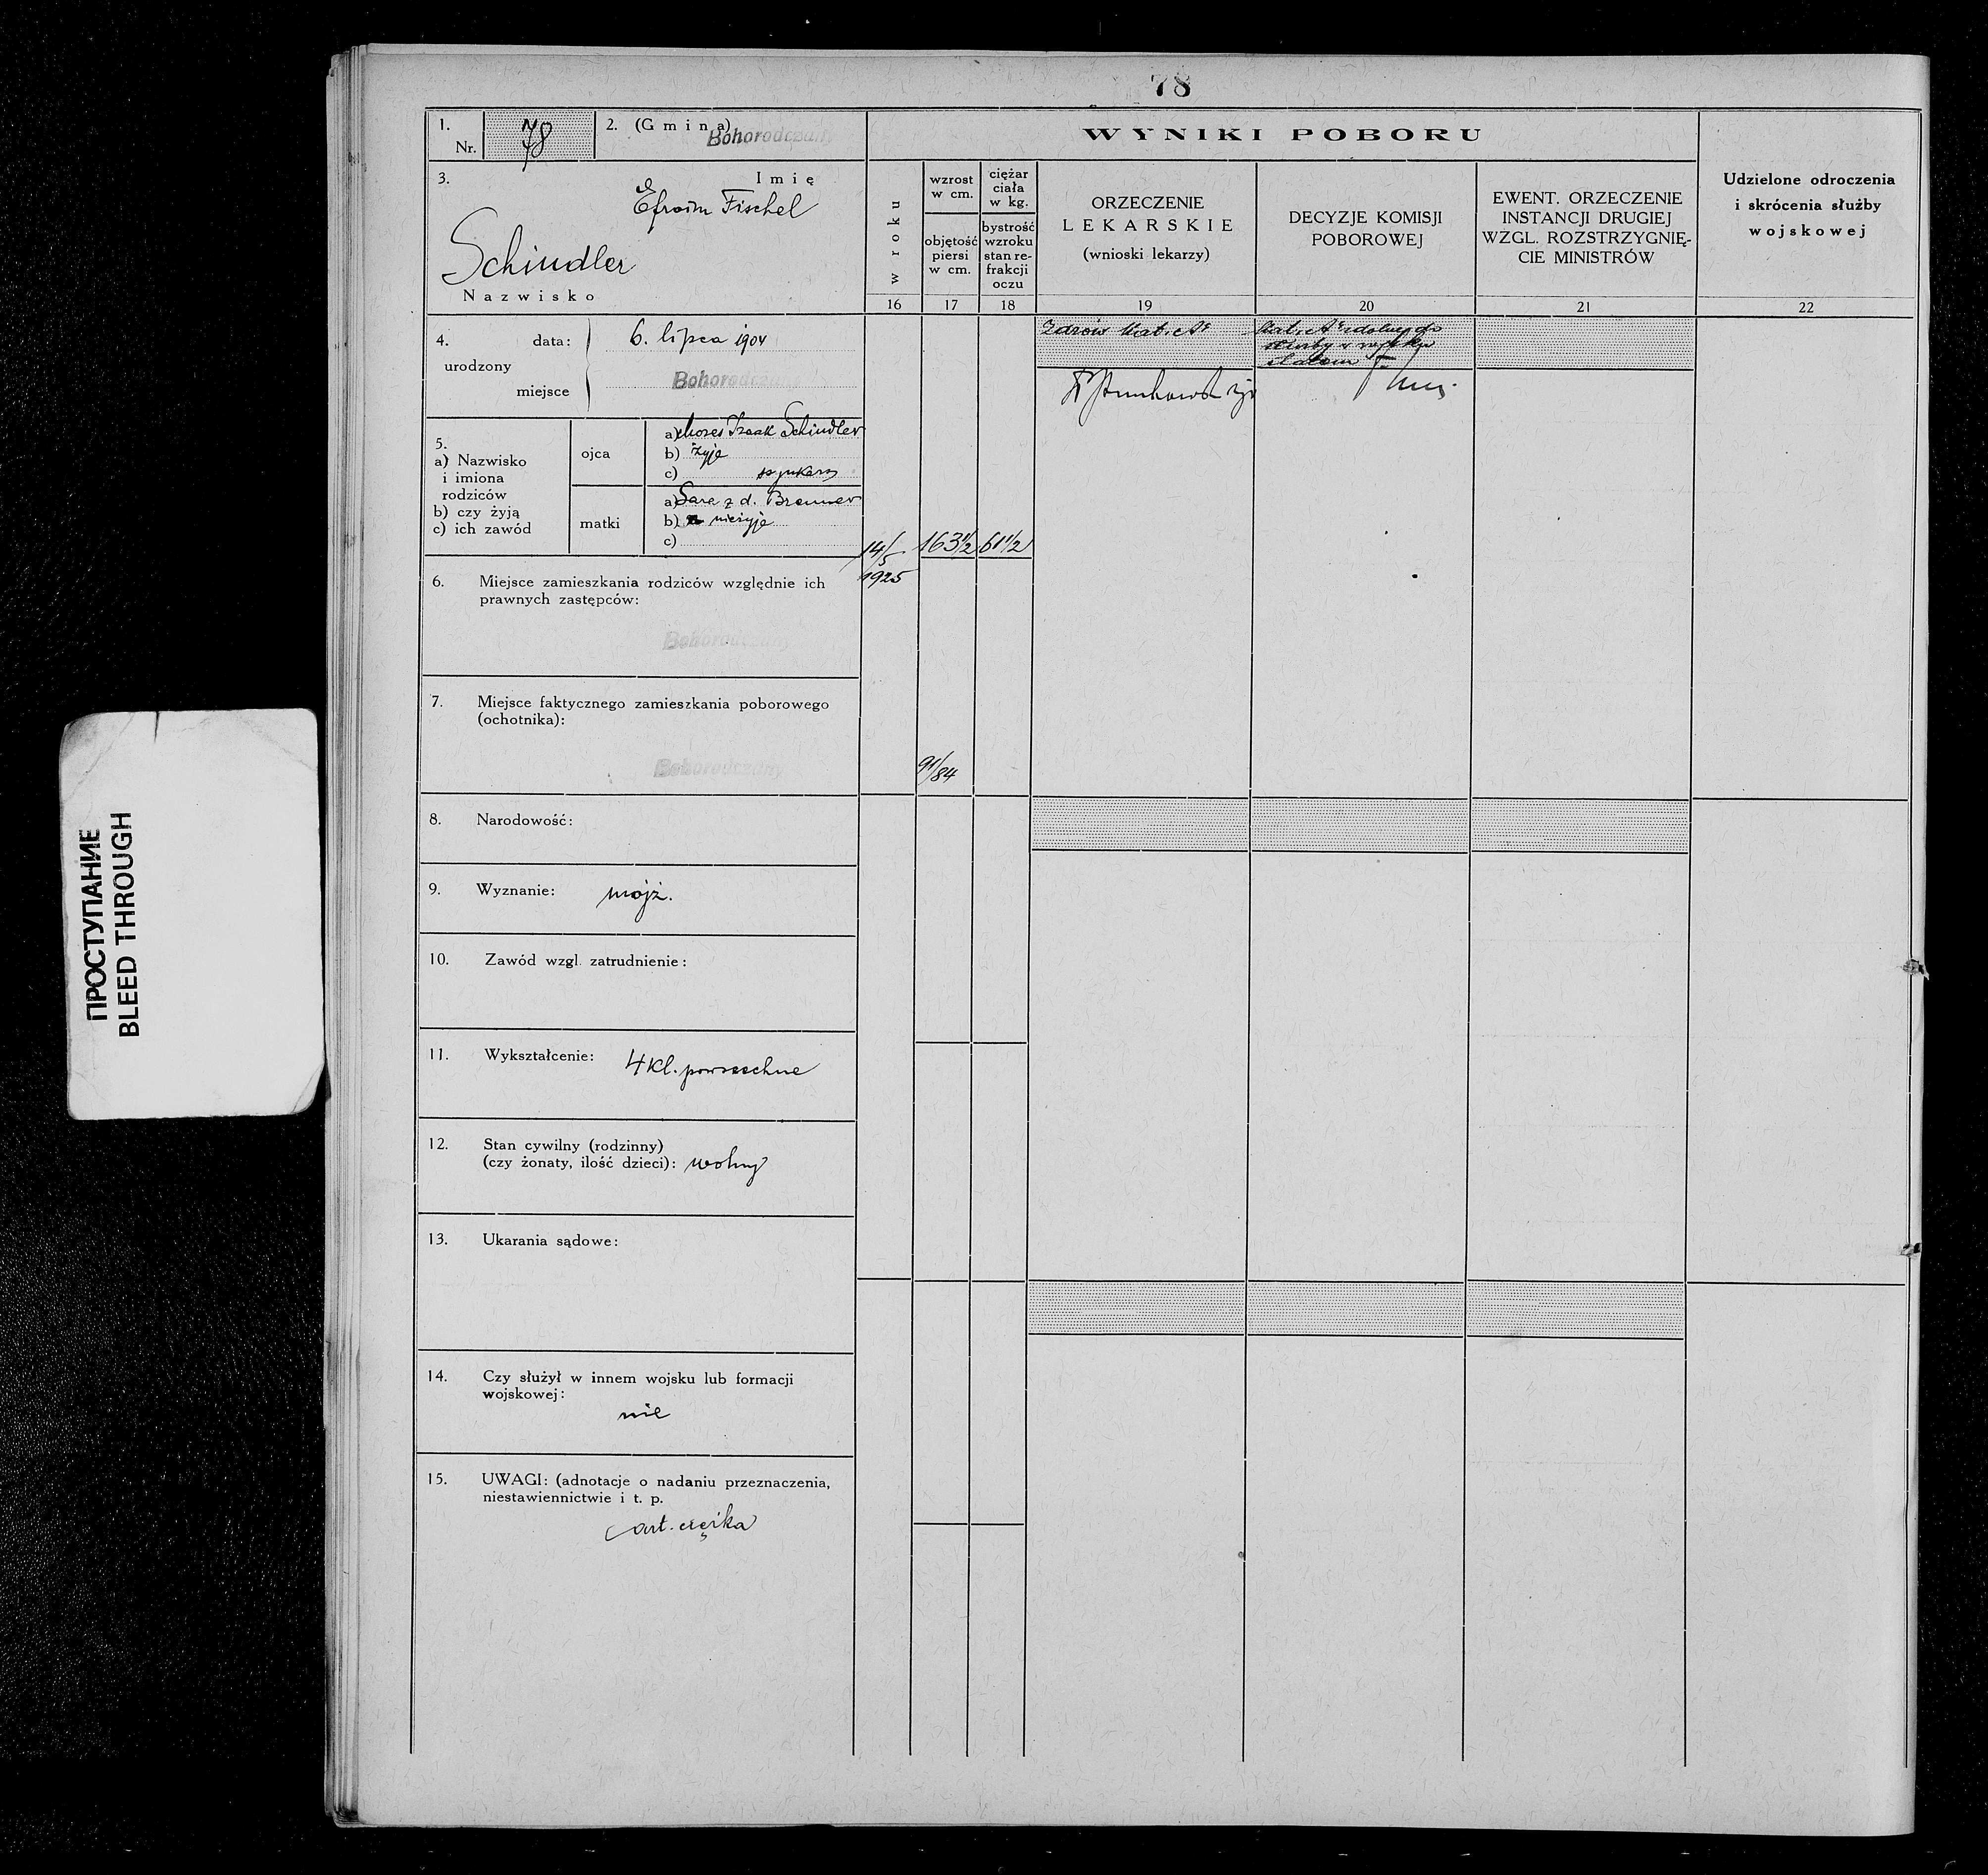 78
1.
Nr. 78
2. (Gmina) Bohorodczany
3.
Imię
Efroim Fischel
Schindler
Nazwisko
4. urodzony
data: 6. lipca 1904
miejsce Bohorodczany
5.
a) Nazwisko
i imiona
rodziców
b) czy żyją
c) ich zawód
ojca
a) Moses Izaak Schindler
b) żyje
c) szynkarz
matki
a) Sara z d. Brenner
b) nieżyje
c)
6. Miejsce zamieszkania rodziców względnie ich
prawnych zastępców:
Bohorodczany
7. Miejsce faktycznego zamieszkania poborowego
(ochotnika):
Bohorodczany
8. Narodowość:
9. Wyznanie: mojż.
10. Zawód wzgl. zatrudnienie:
11. Wykształcenie: 4 kl. powszechne
12. Stan cywilny (rodzinny)
(czy żonaty, ilość dzieci): wolny
13. Ukarania sądowe:
14. Czy służył w innem wojsku lub formacji
wojskowej:
nie
15. UWAGI: (adnotacje o nadaniu przeznaczenia,
niestawiennictwie i t. p.
art. ciężka
WYNIKI POBORU
w roku
16
14/5
1925
wzrost
w cm.
objętość
piersi
w cm.
17
163 1/2
91/84
ciężar
ciała
w kg.
bystrość
wzroku
stan re-
frakcji
oczu
18
61 1/2
ORZECZENIE
LEKARSKIE
(wnioski lekarzy)
19
Zdrów Kat. A
DECYZJE KOMISJI
POBOROWEJ
20
Kat. A zdolny do
służby w wojsku
stałem
EWENT. ORZECZENIE
INSTANCJI DRUGIEJ
WZGL. ROZSTRZYGNIĘ-
CIE MINISTRÓW
21
Udzielone odroczenia
i skrócenia służby
wojskowej
22
ПРОСТУПАНИЕ
BLEED THROUGH